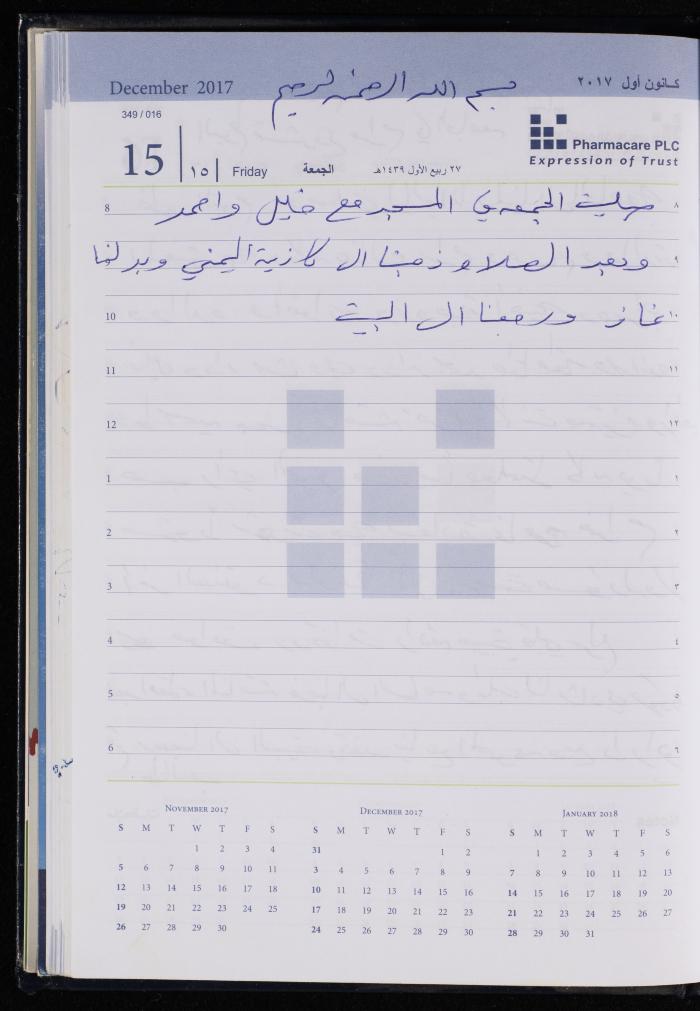 December 2017 بسم الله الرحمن الرحيم كانون أول ٢٠١٧
349 / 016
15 ١٥ Friday الجمعة ٢٧ ربيع الأول ١٤٣٩هـ
Pharmacare PLC
Expression of Trust
8 صليت الجمعه في المسجد مع خليل واحمد ٨
وبعد الصلاة ذهبنا ال كازية اليمني وبدلنا ٩
10 غاز ورجعنا ال البيت ١٠
11 ١١
12 ١٢
1 ١
2 ٢
3 ٣
4 ٤
5 ٥
6 ٦
NOVEMBER 2017
S M T W T F S
1 2 3 4
5 6 7 8 9 10 11
12 13 14 15 16 17 18
19 20 21 22 23 24 25
26 27 28 29 30
DECEMBER 2017
S M T W T F S
31 1 2
3 4 5 6 7 8 9
10 11 12 13 14 15 16
17 18 19 20 21 22 23
24 25 26 27 28 29 30
JANUARY 2018
S M T W T F S
1 2 3 4 5 6
7 8 9 10 11 12 13
14 15 16 17 18 19 20
21 22 23 24 25 26 27
28 29 30 31